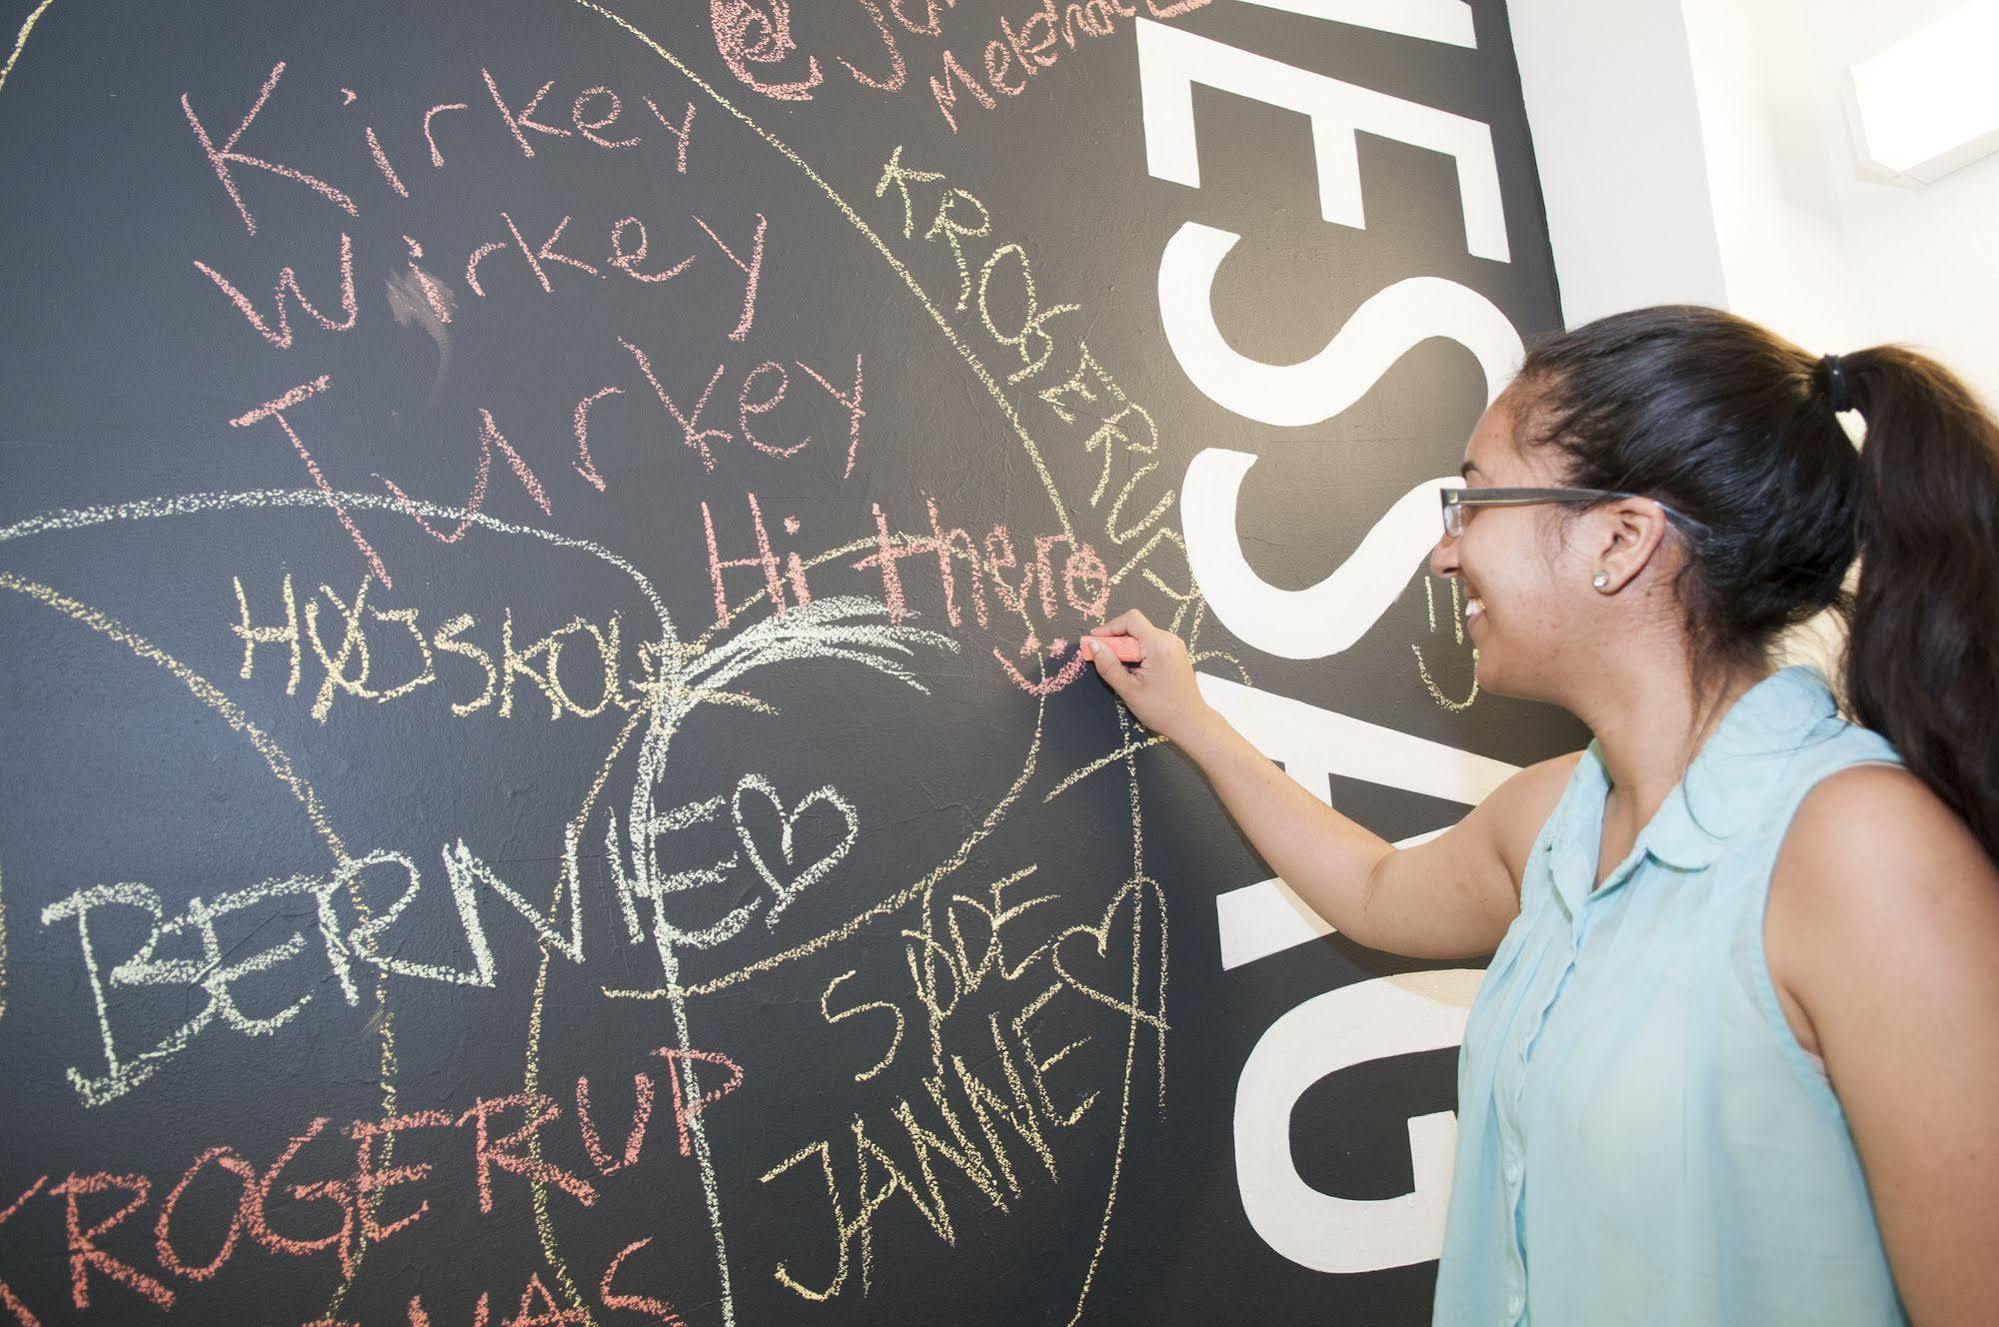 Melen
Kirkey
Wirkey
Turkey
KROGERUP
Hi there
HØJSKOLE
BERNIE
SØDE
JANNE
KROGERUP
ESSAG